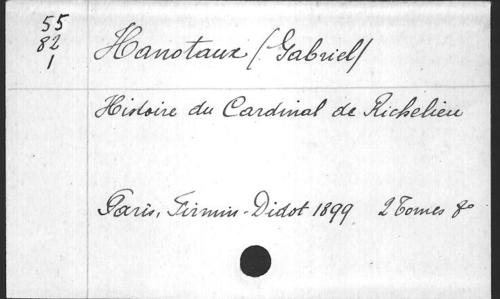 55
82
1
Hanotaux (Gabriel)
Histoire du Cardinal de Richelieu
Paris, Firmin-Didot 1899 2 Tomes 8o